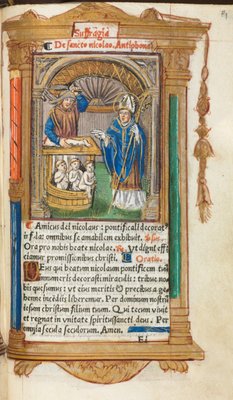 Suffragia
De sancto nicolao. Antiphona
Amicus dei nicolaus: pontificali decorat
omnibus se amabilem exhibuit.
Ora pro nobis beate nicolae. Ut digni effi
ciamur promissionibus christi. Oratio.
Deus qui beatum nicolaum pontificem tuū
decorasti miraculis: tribue no
bis quesumus: vt eius meritis & precibus a ge
henne incēdiis liberemur. Per dominum nostrū
iesum christum filium tuum. Qui tecum viuit
et regnat in vnitate spiritussancti deus. Per
omnia secula seculorum. Amen.